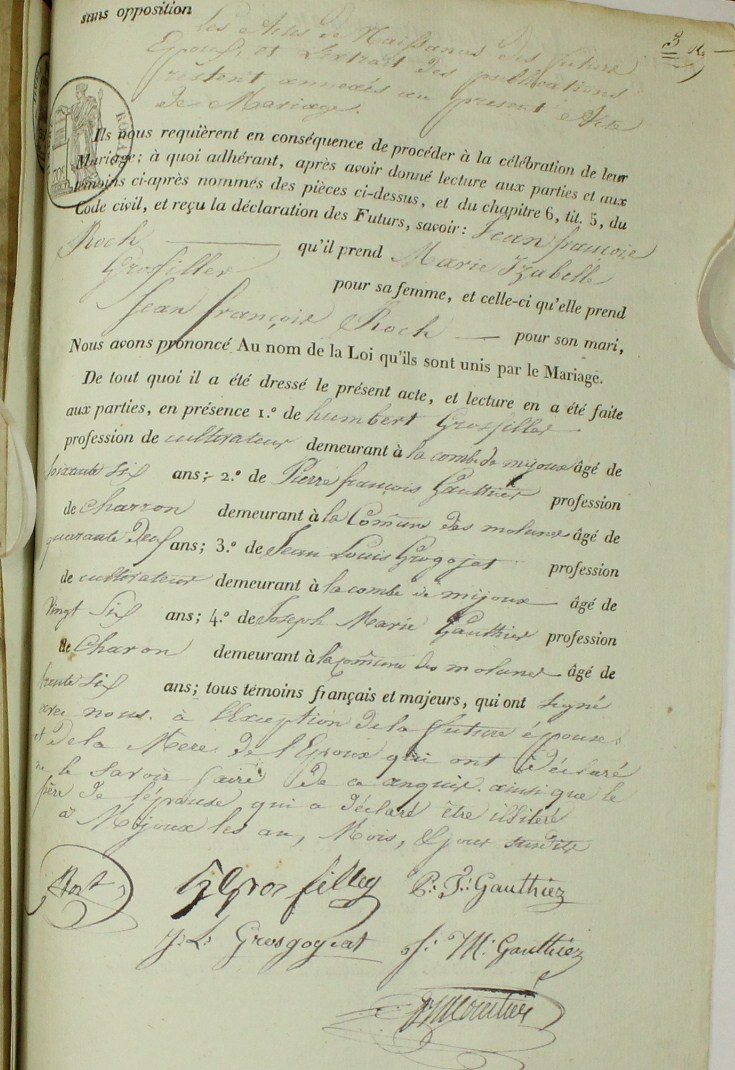 sans opposition
les Actes de Naissances des future
Epous, et Lextrait des publications
restent annexés au present Acte
de Mariage.
Ils nous requièrent en conséquence de procéder à la célébration de leur
Mariage; à quoi adhérant, après avoir donné lecture aux parties et aux
témoins ci-après nommés des pièces ci-dessus, et du chapitre 6, tit. 5, du
Code civil, et reçu la déclaration des Futurs, savoir: Jean françois
Roch qu'il prend Marie Izabelle
Grosfiller pour sa femme, et celle-ci qu'elle prend
Jean françois Roch pour son mari,
Nous avons prononcé Au nom de la Loi qu'ils sont unis par le Mariage.
De tout quoi il a été dressé le présent acte, et lecture en a été faite
aux parties, en présence 1.º de humbert Grosfiller
profession de cultivateur demeurant à la combe de mijoux âgé de
soixante six ans; 2.º de Pierre françois Gauthier profession
de charron demeurant à la Comune des molunes âgé de
quarante neuf ans; 3.º de Jean Louis Grogojat profession
de cultivateur demeurant à la combe de mijoux âgé de
Vingt Six ans; 4.º de Joseph Marie Gauthier profession
de Charon demeurant à la Comune des molunes âgé de
trente six ans; tous témoins français et majeurs, qui ont signé
avec nous. à l'Exception de la future épouse
et de la Mere de l'Epoux qui ont déclaré
ne le savoir faire de ce enquis. ainsi que le
père de l'épouse qui a déclaré être illitéré
à Mijoux les an, Mois, & jour susdits
Grosfilley P: F: Gauthiez
J. L. Grosgogeat J: M: Gauthiez